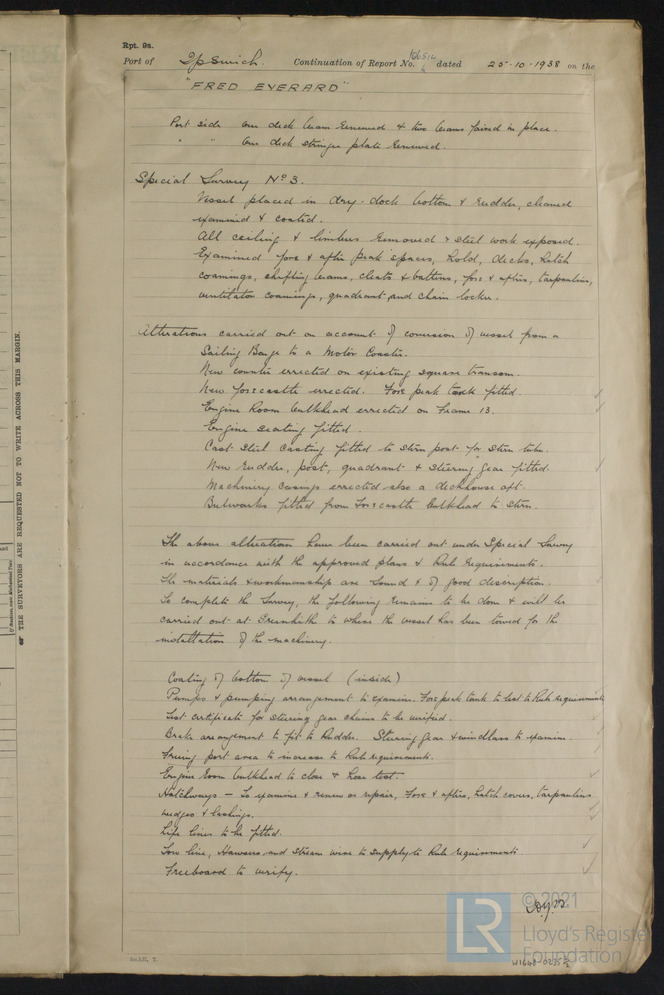 Rpt. 9a.
Port of Ipswich. Continuation of Report No. dated 25·10·1938 on the
"FRED EVERARD"
Port side One deck beam renewed & two beams faired in place.
" " One deck stringer plate renewed.
Special Survey No 3.
Vessel placed in dry-dock bottom & rudder, cleaned
examined & coated.
All ceiling & limbers removed & steel work exposed.
Examined fore & after peak spaces, hold, decks, hatch
coamings, shifting beams, cleats & battens, fore & afters, tarpaulins,
ventilator coamings, quadrant and chain locker.
Alterations carried out on account of conversion of vessel from a
Sailing Barge to a Motor Coaster.
New counter errected on existing square transom.
New forecastle errected. Fore peak tank fitted.
Engine Room bulkhead errected on Frame 13.
Engine seating fitted.
Cast Steel casting fitted to stern post for stern tube.
New rudder, post, quadrant & steering gear fitted.
Machinery casings errected also a deckhouse aft.
Bulwarks fitted from forecastle bulkhead to stern.
The above alteration have been carried out under Special Survey
in accordance with the approved plans & Rule requirements.
The materials & workmanship are sound & of good description.
To complete the Survey, the following remains to be done & will be
carried out at Greenhithe to where the vessel has been towed for the
installation of the machinery.
Coating of bottom of vessel (inside)
Pumps & pumping arrangement to examine. Fore peak tank to test to Rule requirements
Test certificate for steering gear chains to be verified.
Brake arrangement to fit to Rudder. Steering gear & windlass to examine.
Freeing port area to increase to Rule requirements.
Engine Room bulkhead to close & hose test.
Hatchways — To examine & renew or repair, Fore & afters, hatch covers, tarpaulins
wedges & lashings.
Life lines to be fitted.
Tow line, Hawsers and Stream wire to supply to Rule requirements.
Freeboard to verify.
THE SURVEYORS ARE REQUESTED NOT TO WRITE ACROSS THIS MARGIN.
© 2021
LR
Lloyd's Registe
Foundation
W1648-0235 2/2